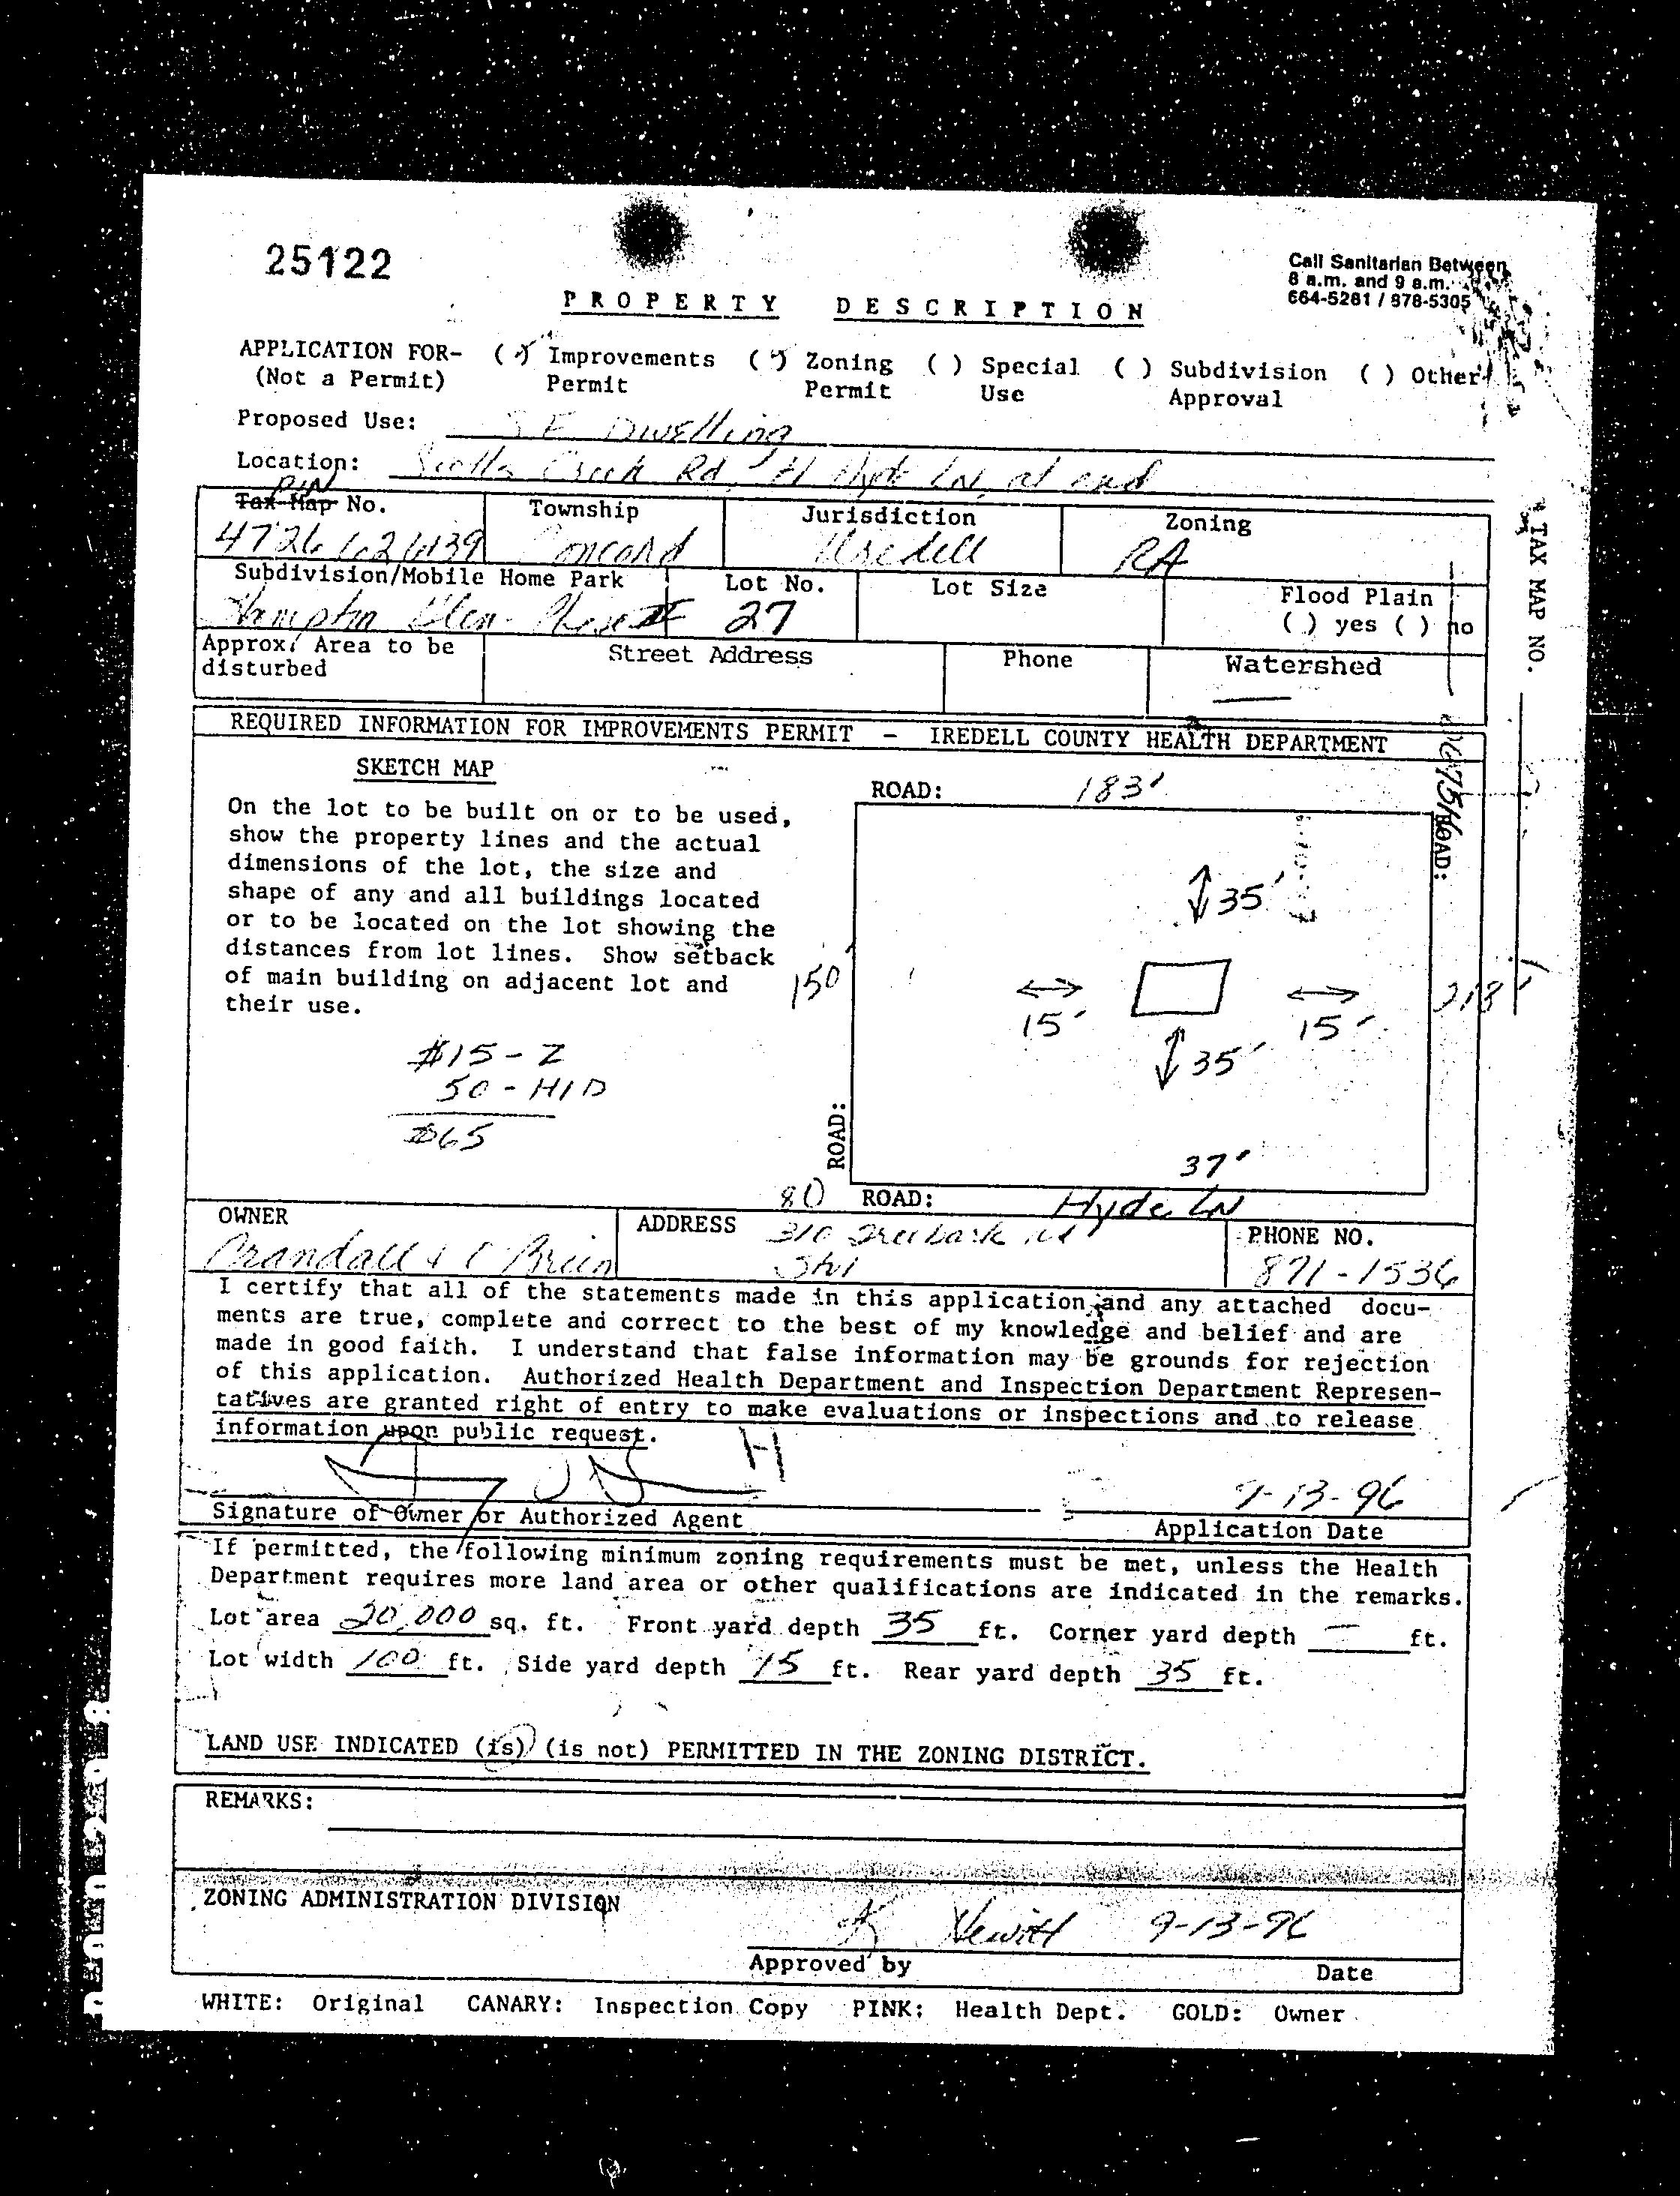 25122
Call Sanitarian Between
8 a.m. and 9 a.m.
664-5281 / 878-5305
PROPERTY DESCRIPTION
APPLICATION FOR- ( ) Improvements ( ) Zoning ( ) Special ( ) Subdivision ( ) Other
(Not a Permit) Permit Permit Use Approval
Proposed Use: S F Dwelling
Location: Creek Rd Hyde Ln, at end
PIN
Tax Map No. Township Jurisdiction Zoning
Concord Iredell RA
Subdivision/Mobile Home Park Lot No. Lot Size Flood Plain
Hampton Glen Phase II 27 ( ) yes ( ) no
Approx. Area to be Street Address Phone Watershed
disturbed
TAX MAP NO.
REQUIRED INFORMATION FOR IMPROVEMENTS PERMIT - IREDELL COUNTY HEALTH DEPARTMENT
SKETCH MAP
ROAD: 183'
On the lot to be built on or to be used,
show the property lines and the actual
dimensions of the lot, the size and
shape of any and all buildings located
or to be located on the lot showing the
distances from lot lines. Show setback
of main building on adjacent lot and
their use.
ROAD:
35'
150'
15'
15'
218'
35'
37'
$15-Z
50-H/D
$65
ROAD:
80 ROAD: Hyde LN
OWNER ADDRESS 310 PHONE NO.
Crandall & O'Brien Stvl 871-1536
I certify that all of the statements made in this application and any attached docu-
ments are true, complete and correct to the best of my knowledge and belief and are
made in good faith. I understand that false information may be grounds for rejection
of this application. Authorized Health Department and Inspection Department Represen-
tatives are granted right of entry to make evaluations or inspections and to release
information upon public request.
9-13-96
Signature of Owner or Authorized Agent Application Date
If permitted, the following minimum zoning requirements must be met, unless the Health
Department requires more land area or other qualifications are indicated in the remarks.
Lot area 20,000 sq. ft. Front yard depth 35 ft. Corner yard depth - ft.
Lot width 100 ft. Side yard depth 15 ft. Rear yard depth 35 ft.
LAND USE INDICATED (is) (is not) PERMITTED IN THE ZONING DISTRICT.
REMARKS:
ZONING ADMINISTRATION DIVISION
K Hewitt 9-13-96
Approved by Date
WHITE: Original CANARY: Inspection Copy PINK: Health Dept. GOLD: Owner